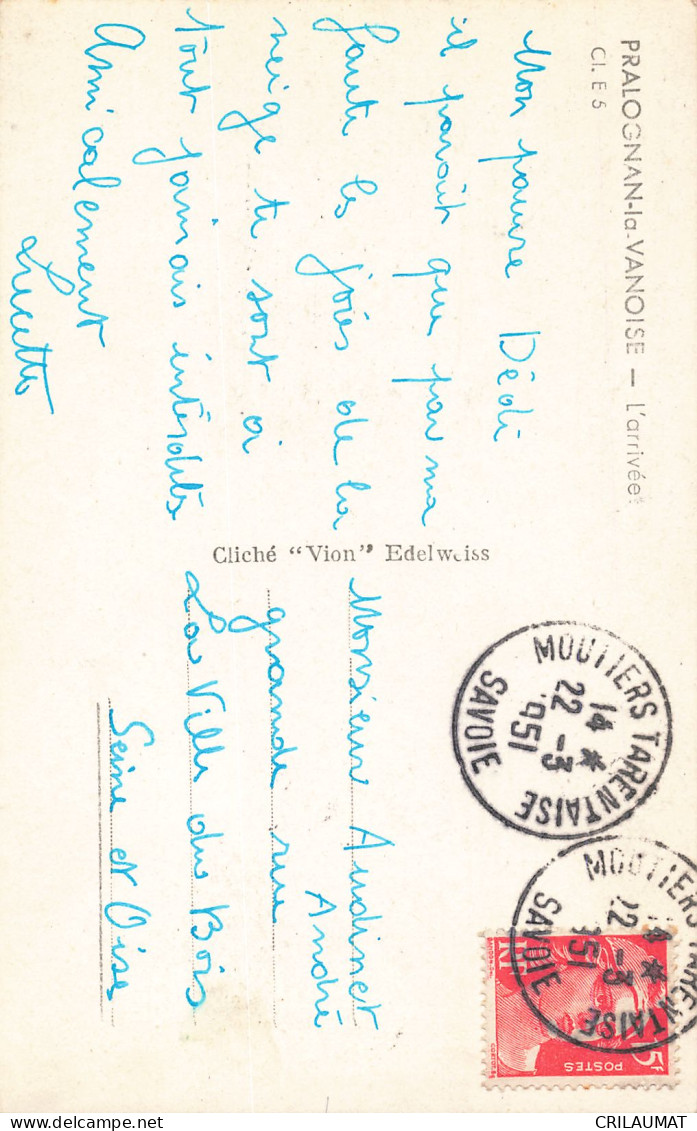 PRALOGNAN-la-VANOISE — L'arrivée
Cl. E 5
Mon pauvre Dédé
il paraît que par ma
faute les joies de la
neige te sont à
tout jamais interdites
Amicalement
Lucette
Cliché "Vion" Edelweiss
Monsieur Audinet
André
grande rue
La Ville du Bois
Seine et Oise
MOUTIERS TARENTAISE
14 *
22 -3
951
SAVOIE
MOUTIERS TARENTAISE
14 *
22 -3
951
SAVOIE
15F
POSTES
CRILAUMAT